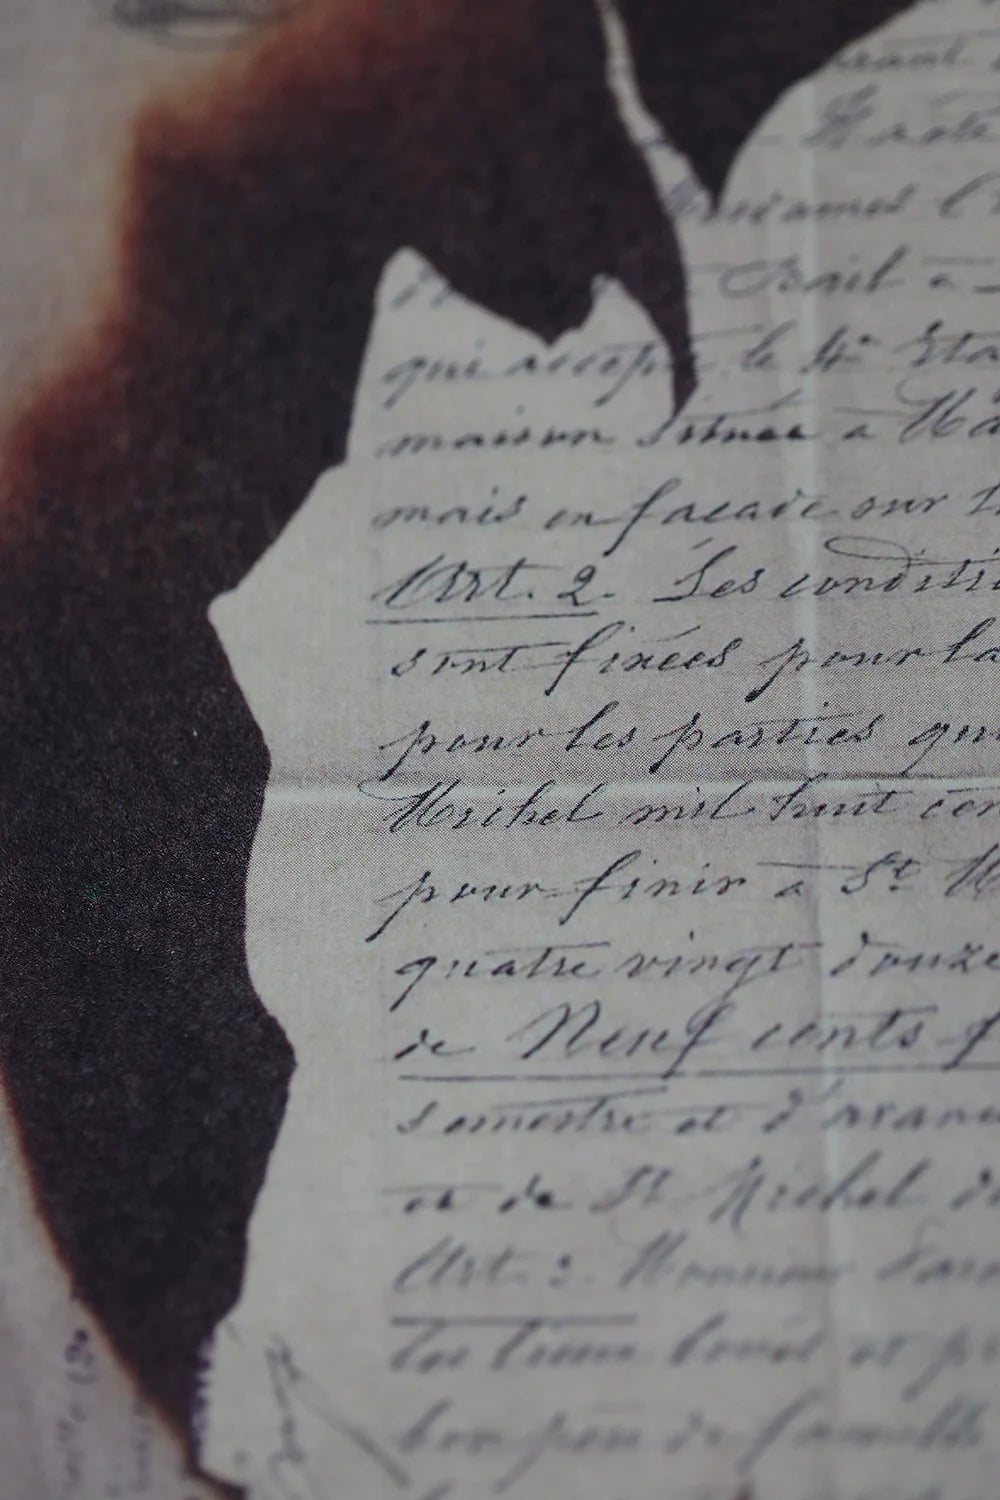 Bail à
qui accepte le 4e Éta
maison située à Ma
mais en façade sur l
Art. 2. Les conditi
sont fixées pour la
pour les parties qui
Michel mil huit cen
pour finir à St M
quatre vingt douze
de Neuf cents f
semestre et d'avan
et de St Michel d
Art. 3. Monsieur
les lieux loués et pr
bon père de famille